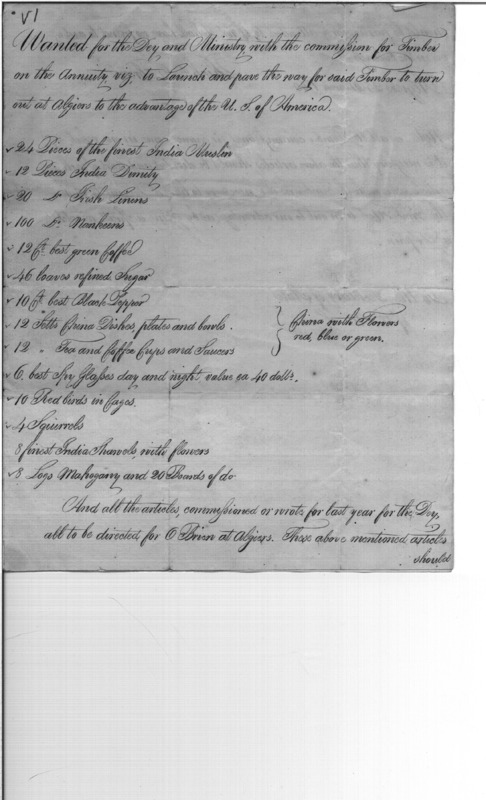 V1
Wanted for the Dey and Ministry with the commission for Timber
on the Annuity, viz. to Launch and pave the way for said Timber to turn
out at Algiers to the advantage of the U. S. of America.
24 Pieces of the finest India Muslin
12 Pieces India Dimity
20 Do Irish Linens
100 Do. Nankeens
12 Ct. best green Coffee
46 loaves refined Sugar
10 Ct. best Black Pepper
12 Setts China Dishes, plates and bowls.
12 " Tea and Coffee Cups and Saucers
China with Flowers
red, blue or green.
6. best Spy Glasses day and night value ea 40 dolls.
10 Red birds in Cages.
4 Squirrels
8 finest India Shawels, with flowers
8 Logs Mahogany and 20 Boards of do
And all the articles, commissioned or wrote for last year for the Dey,
all to be directed for O Brien at Algiers. These above mentioned articles
should